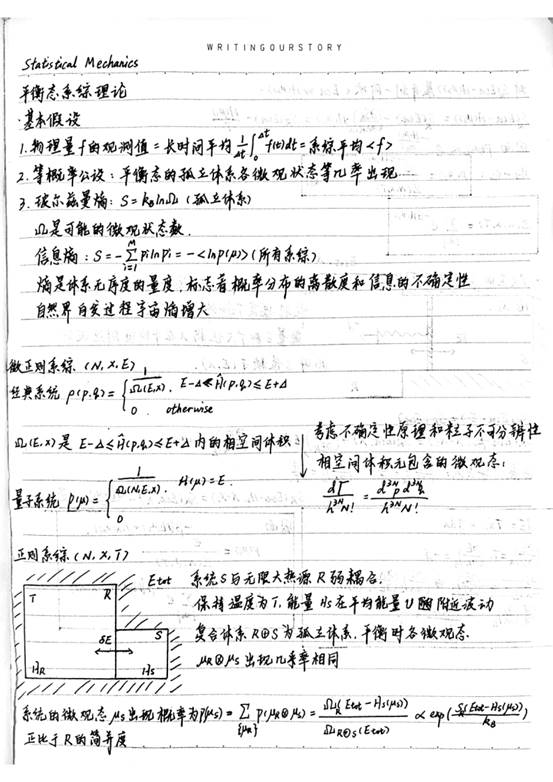 WRITINGOURSTORY
Statistical Mechanics
平衡态系综理论
·基本假设
1. 物理量f的观测值 = 长时间平均 \frac{1}{Δt}∫_0^{Δt} f(t)dt = 系综平均 <f>
2. 等概率公设: 平衡态的孤立体系各微观状态等几率出现
3. 玻尔兹曼熵: S = k_B lnΩ (孤立体系)
Ω是可能的微观状态数.
信息熵: S = -\sum_{i=1}^{M} p_i ln p_i = -<ln p(μ)> (所有系综)
熵是体系无序度的量度, 标志着概率分布的离散度和信息的不确定性
自然界自发过程宇宙熵增大
微正则系综 (N, X, E)
经典系统 ρ(p,q) = { \frac{1}{Ω(E,X)}, E-Δ≤Ĥ(p,q)≤E+Δ
0. otherwise
Ω(E,X) 是 E-Δ≤Ĥ(p,q)≤E+Δ 内的相空间体积
考虑不确定性原理和粒子不可分辨性
相空间体积元包含的微观态:
\frac{dΓ}{h^{3N}N!} = \frac{d^{3N}p d^{3N}q}{h^{3N}N!}
量子系统 p(μ) = { \frac{1}{Ω(N,E,X)}, H(μ)=E.
0
正则系综 (N, X, T)
T R Etot
δE S
H_R H_S
系统S与无限大热源R弱耦合.
保持温度为T, 能量 Hs 在平均能量U附近波动
复合体系 R⊕S 为孤立体系, 平衡时各微观态
μ_R⊗μ_S 出现几率相同
系统的微观态 μs 出现概率为 p(μs) = \sum_{\{μ_R\}} p(μ_R⊗μ_S) = \frac{Ω_R(Etot-Hs(μs))}{Ω_{R⊕S}(Etot)} ∝ exp(\frac{S_R(Etot-Hs(μs))}{k_B})
正比于R的简并度